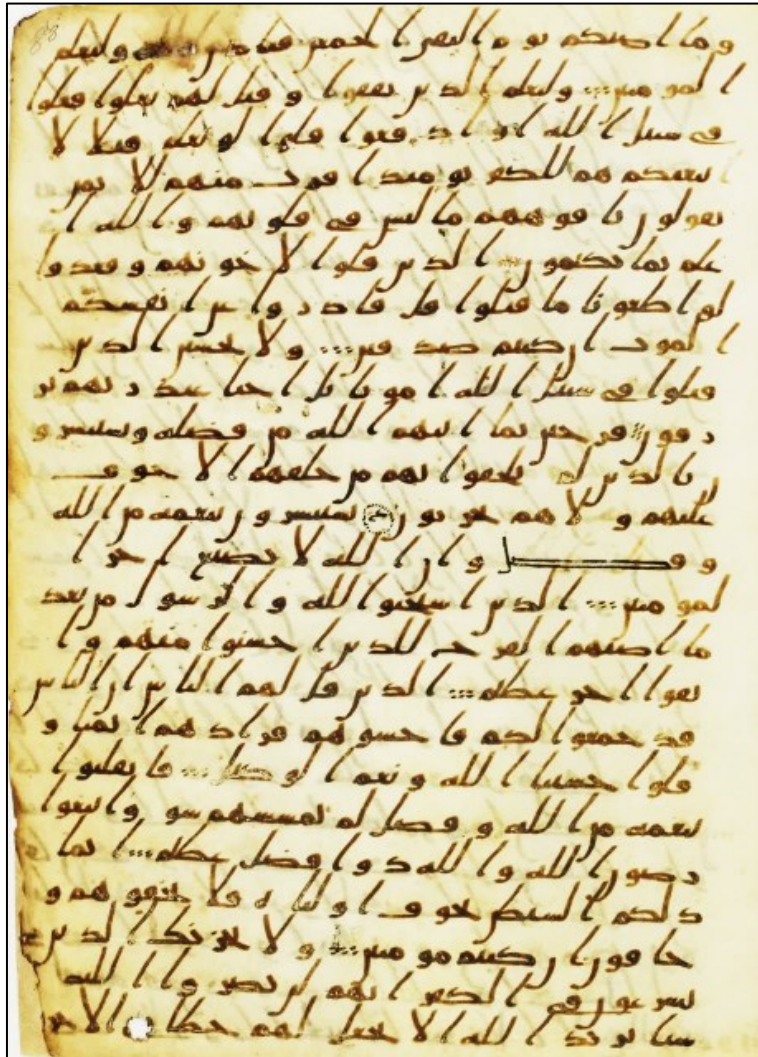 وما اصبكم يوم التقى الجمعن فباذن الله وليعلم
المومنين وليعلم الذين نفقوا وقيل لهم تعلوا قتلوا
في سبيل الله او ادفعوا قلوا لو نعلم قتلا لا
تبعنكم هم للكفر يومئذ اقرب منهم للايمن
يقولون بافوههم ما ليس في قلوبهم والله ا
علم بما يكتمون الذين قلوا لاخونهم وقعدوا
لو اطعونا ما قتلوا قل فادروا عن انفسكم
الموت ان كنتم صدقين ولا تحسبن الذين
قتلوا في سبيل الله اموتا بل احيا عند ربهم ير
زقون فرحين بما اتيهم الله من فضله ويستبشرو
ن بالذين لم يلحقوا بهم من خلفهم الا خوف
عليهم ولا هم يحزنون يستبشرون بنعمة من الله
وفضل وان الله لا يضيع اجر ا
لمومنين الذين استجبوا لله والرسول من بعد
ما اصبهم القرح للذين احسنوا منهم وا
تقوا اجر عظيم الذين قل لهم الناس ان الناس
قد جمعوا لكم فاخشوهم فزادهم ايمنا و
قلوا حسبنا الله ونعم الوكيل فانقلبوا
بنعمة من الله وفضل لم يمسسهم سو واتبعوا
رضون الله والله ذوا فضل عظيم انما
ذلكم الشيطن يخوف اولياه فلا تخفوهم و
خافون ان كنتم مومنين ولا يحزنك الذين
يسرعون في الكفر انهم لن يضروا الله
شيا يريد الله الا يجعل لهم حظا في الاخر